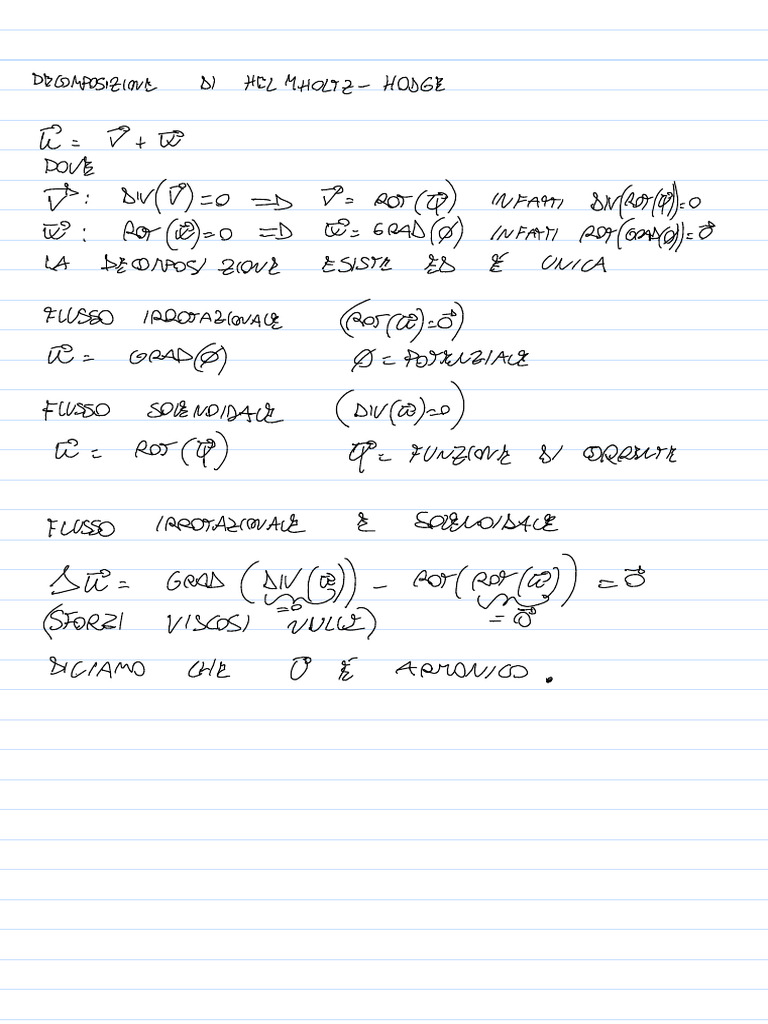 DECOMPOSIZIONE DI HELMHOLTZ - HODGE
u⃗ = v⃗ + w⃗
DOVE
v⃗ : DIV(v⃗)=0 => v⃗ = ROT(Ψ⃗) INFATTI DIV(ROT(Ψ⃗))=0
w⃗ : ROT(w⃗)=0 => w⃗ = GRAD(φ) INFATTI ROT(GRAD(φ))=0⃗
LA DECOMPOSIZIONE ESISTE ED È UNICA
FLUSSO IRROTAZIONALE (ROT(u⃗)=0⃗)
u⃗ = GRAD(φ) φ = POTENZIALE
FLUSSO SOLENOIDALE (DIV(u⃗)=0)
u⃗ = ROT(Ψ⃗) Ψ⃗ = FUNZIONE DI CORRENTE
FLUSSO IRROTAZIONALE E SOLENOIDALE
Δu⃗ = GRAD(DIV(u⃗)) - ROT(ROT(u⃗)) = 0⃗
=0 =0⃗
(SFORZI VISCOSI NULLI)
DICIAMO CHE U⃗ È ARMONICO.